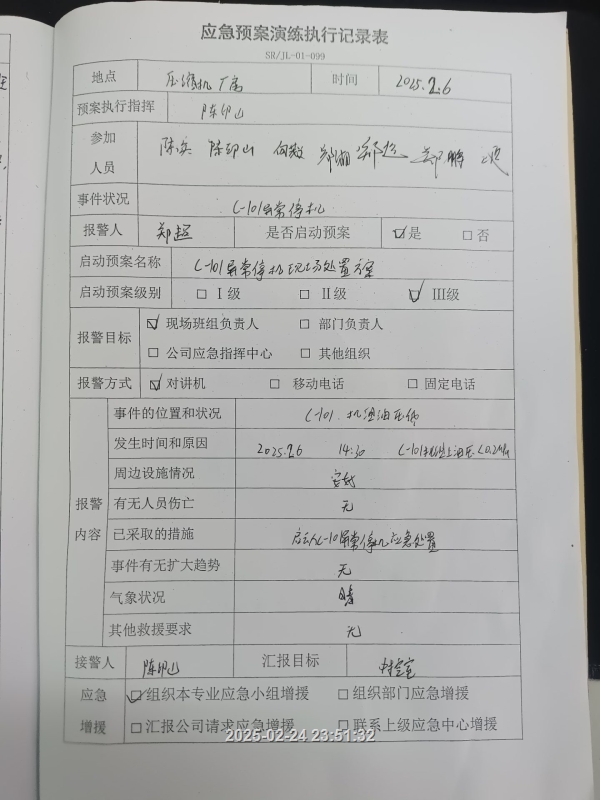 应急预案演练执行记录表
SR/JL-01-099
地点 压缩机厂房 时间 2025.2.6
预案执行指挥 陈印山
参加人员 陈兵 陈印山 郑湘 郑超 郑鹏
事件状况 C-101异常停机
报警人 郑超 是否启动预案 ☑是 □否
启动预案名称 C-101异常停机现场处置方案
启动预案级别 □Ⅰ级 □Ⅱ级 ☑Ⅲ级
报警目标 ☑现场班组负责人 □部门负责人
□公司应急指挥中心 □其他组织
报警方式 ☑对讲机 □移动电话 □固定电话
报警内容
事件的位置和状况 C-101.机组油压低
发生时间和原因 2025.2.6 14:30 C-101 油压<0.2MPa
周边设施情况 完好
有无人员伤亡 无
已采取的措施 启动C-101异常停机应急处置
事件有无扩大趋势 无
气象状况 晴
其他救援要求 无
接警人 陈印山 汇报目标 中控室
应急增援 ☑组织本专业应急小组增援 □组织部门应急增援
□汇报公司请求应急增援 □联系上级应急中心增援
2025-02-24 23:51:32